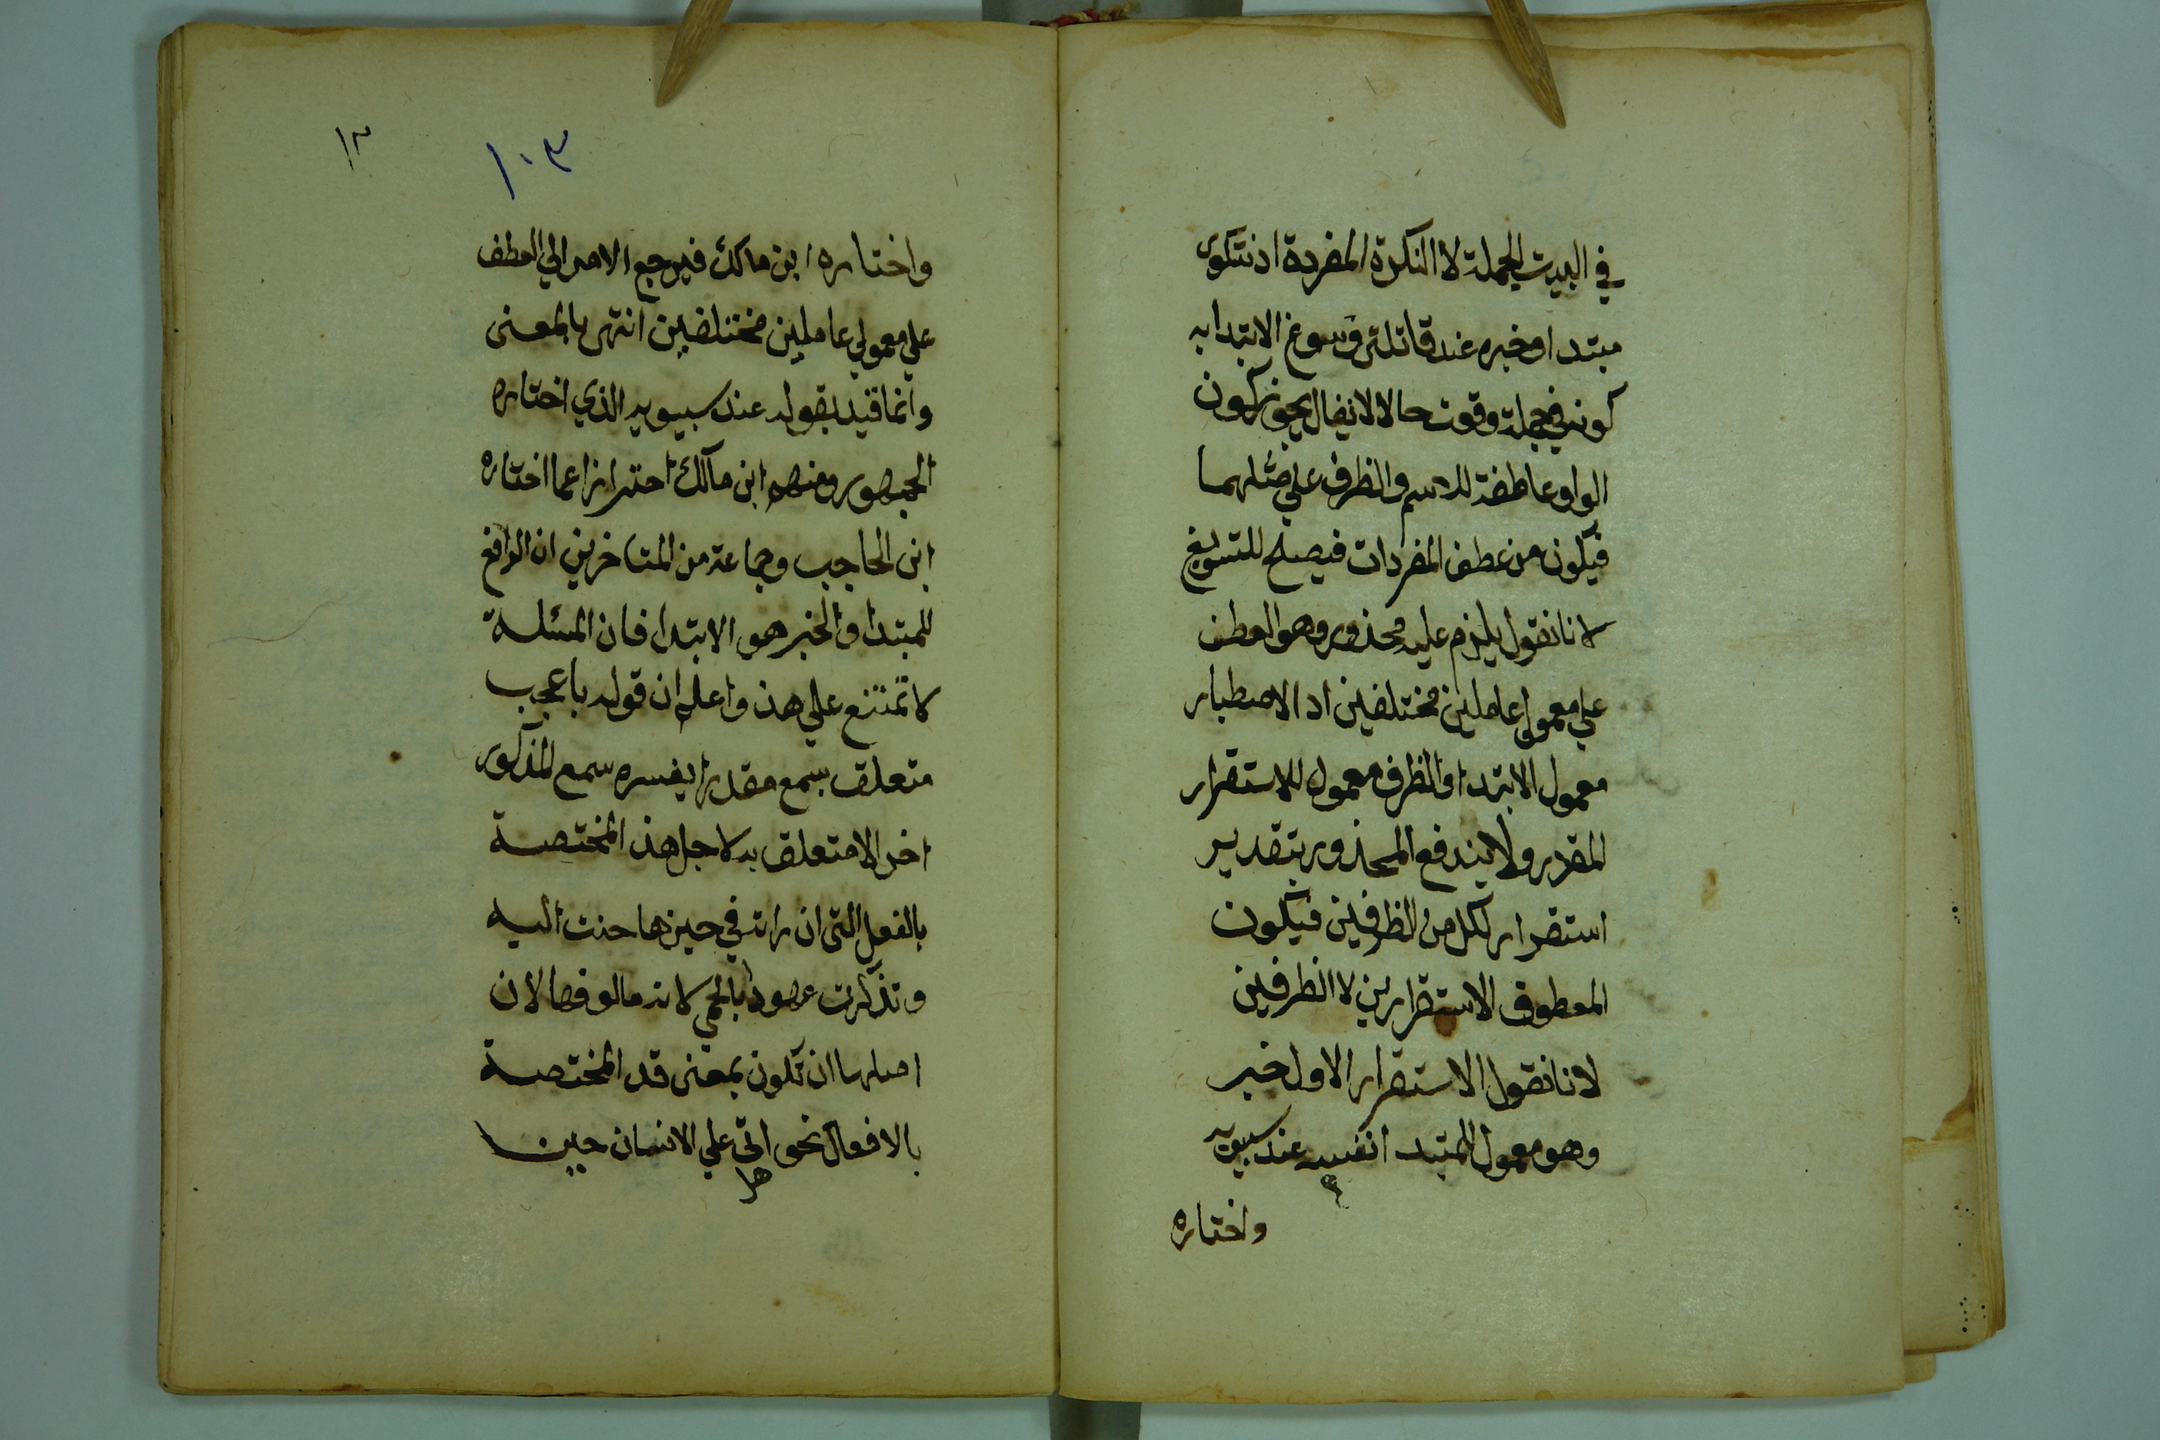 في البيت للجملة لا النكرة المفردة اذ شكوى
مبتدا وخبره عند قاتلتى وسوغ الابتدا به
كونه في جملة وقعت حالا لا نيفال يجوز كون
الواو عاطفة للاسم والظرف على مثلهما
فيكون من عطف المفردات فيصلح للتسويغ
لانا نقول يلزم عليه محذور وهو العطف
على معمولي عاملين مختلفين اذ الاصطبار
معمول الابتدا والظرف معمول للاستقرار
المقدر ولا يندفع المحذور بتقدير
استقرار لكل من الظرفين فيكون
المعطوف الاستقرارين لا الظرفين
لانا نقول الاستقرار الاول خبر
وهو معمول للمبتدا نفسه عند سيبويه
واختاره
١٠٣
١٣
واختاره ابن مالك فيرجع الامر الي العطف
علي معمولي عاملين مختلفين انتهى بالمعنى
وانما قيد بقوله عند سيبويه الذي اختاره
الجمهور ومنهم ابن مالك احترازا عما اختاره
ابن الحاجب وجماعة من المتاخرين ان الرافع
للمبتدا والخبر هو الابتدا فان المسئلة
لا تمتنع علي هذا واعلم ان قوله باعجب
متعلق بسمع مقدرا يفسره سمع المذكور
اخر الا متعلق به لاجل هذا المختصة
بالفعل التى ان رات في حيزها حنت اليه
وتذكرت عهودا بالحمي لانه مالوفها لان
اصلها ان تكون بمعنى قد المختصة
بالافعال نحو هل اتى علي الانسان حين